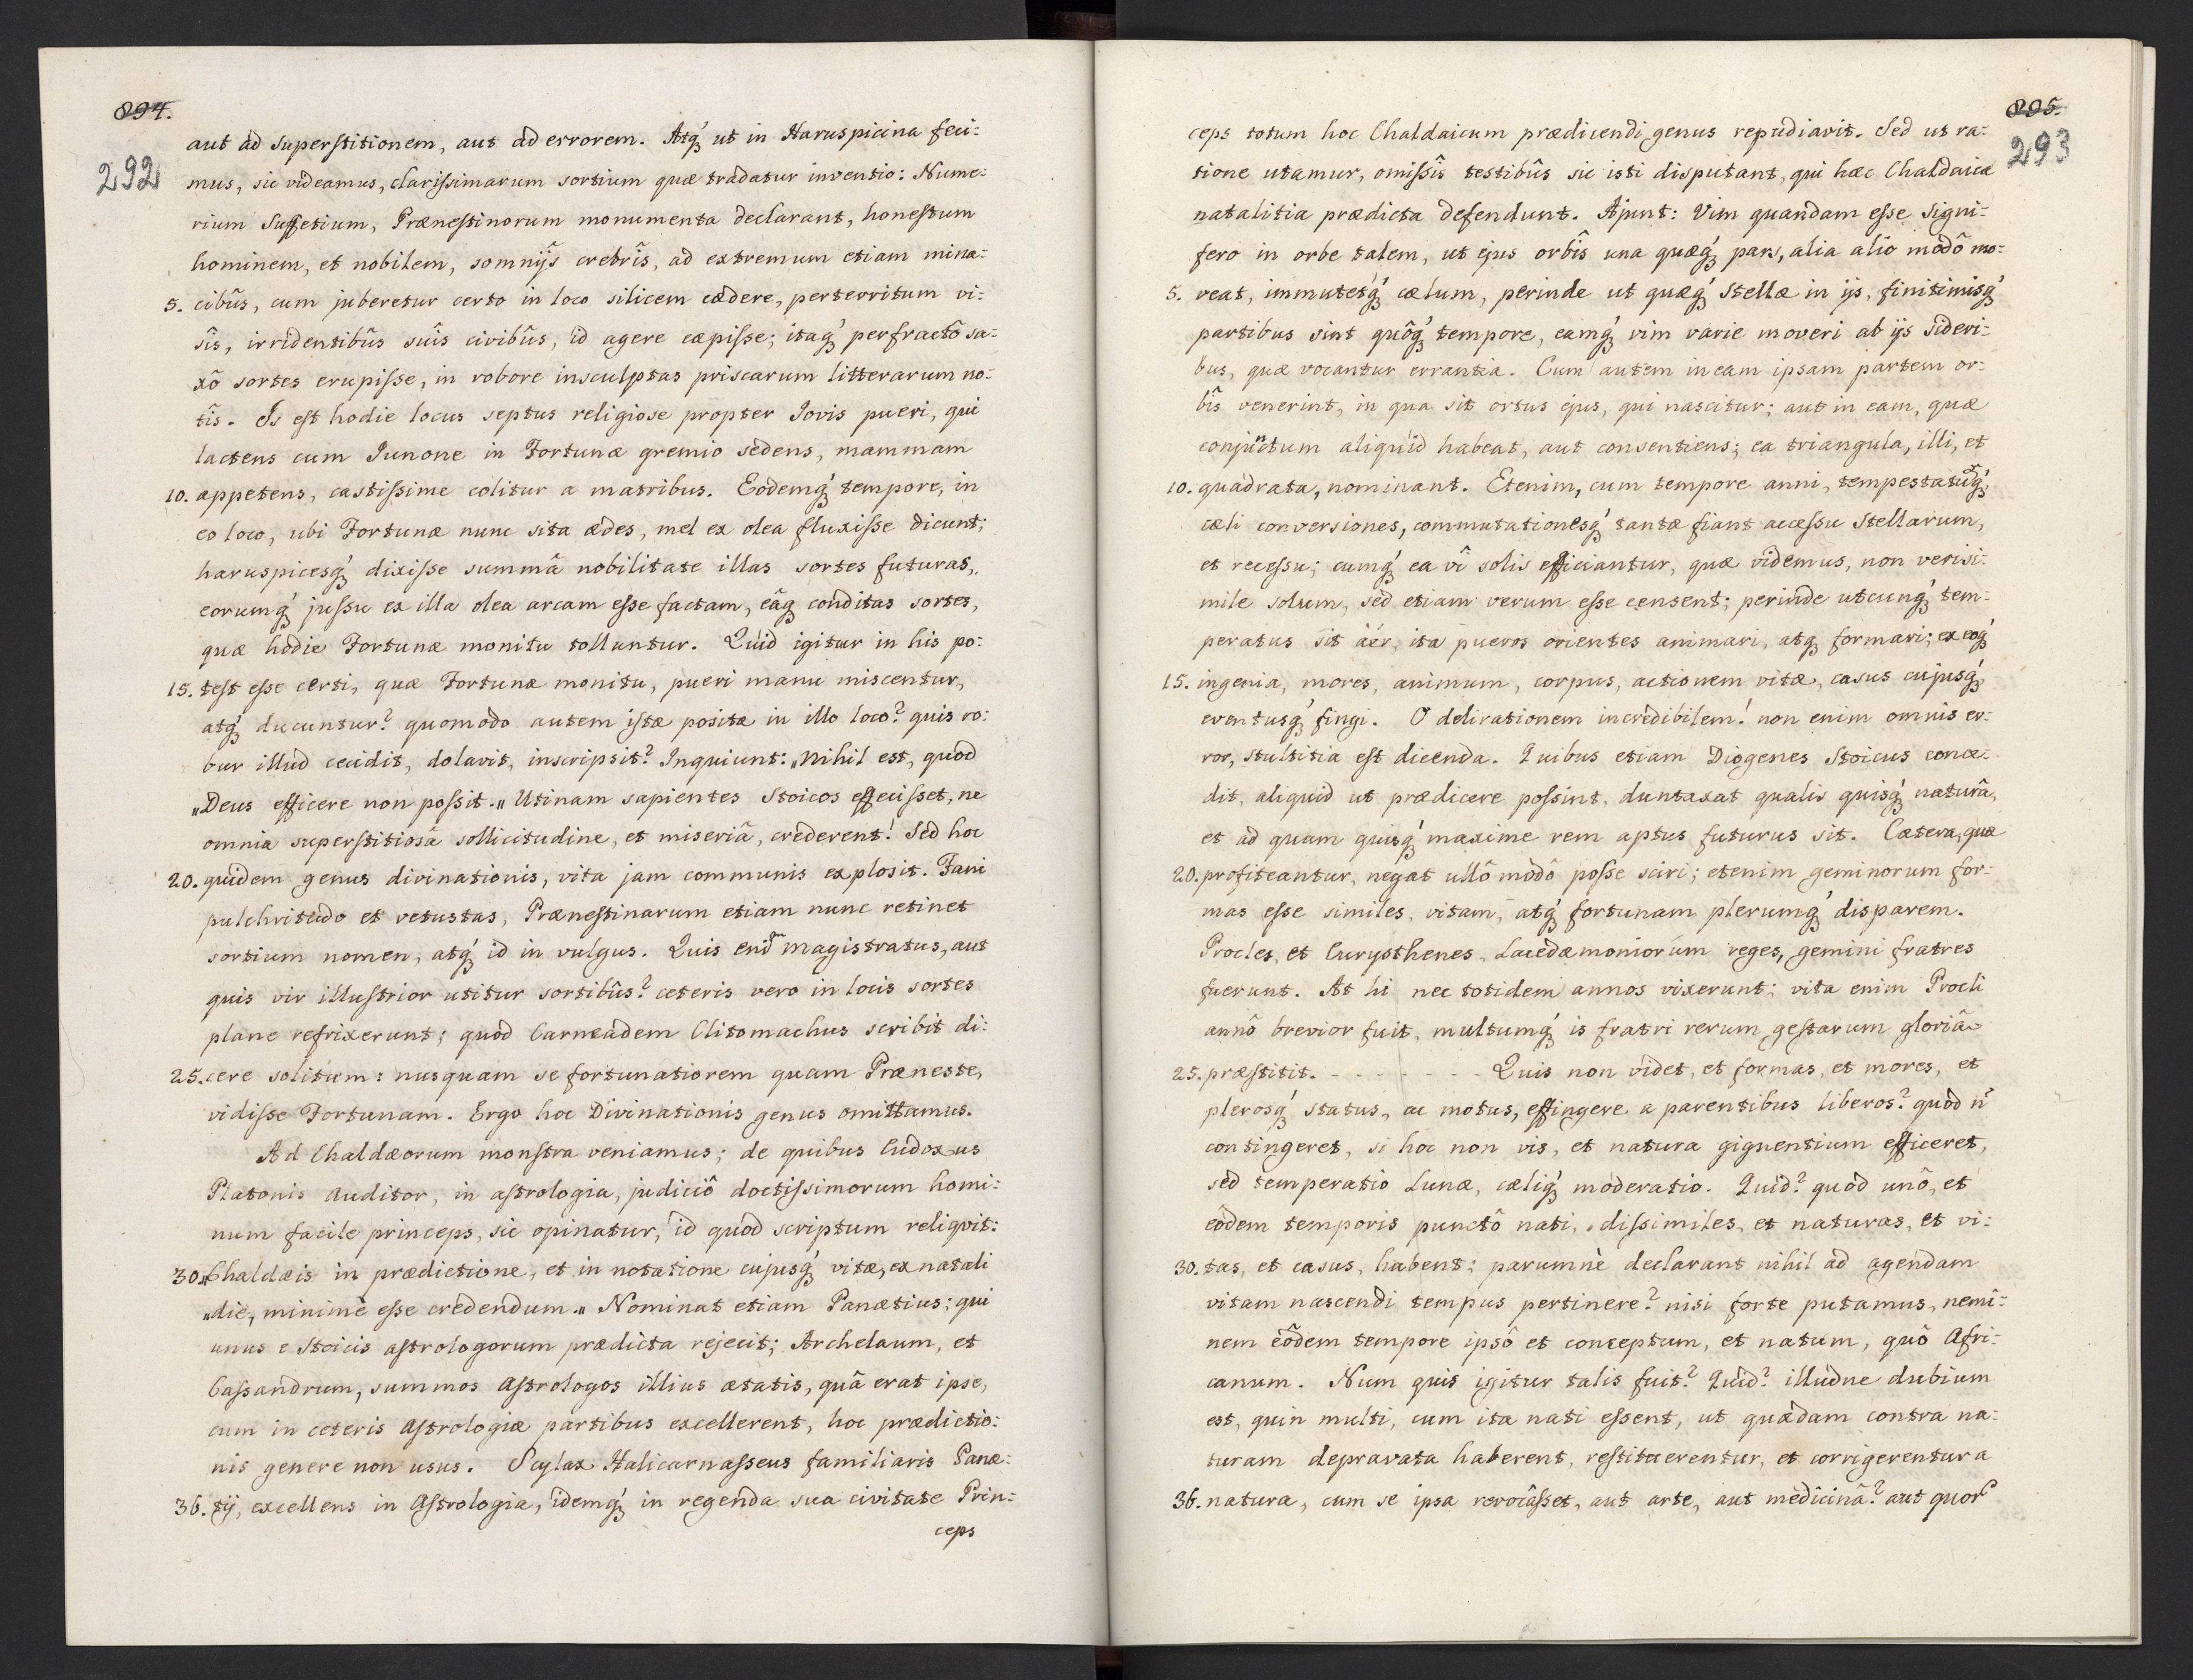 894.
292
aut ad superstitionem, aut ad errorem. Atq́ꝫ ut in Haruspicina feci:
mus, sic videamus, clarissimarum sortium quæ tradatur inventio: Nume:
rium Suffetium, Prænestinorum monumenta declarant, honestum
hominem, et nobilem, somnijs crebrîs, ad extremum etiam mina:
5. cibûs, cum juberetur certo in loco silicem cædere, perterritum vi:
sîs, irridentibûs suîs civibûs, id agere cæpisse; itaq́ꝫ perfractô sa:
xô sortes erupisse, in robore insculptas priscarum litterarum no:
tîs. Is est hodie locus septus religiose propter Jovis pueri, qui
lactens cum Junone in Fortunæ gremio sedens, mammam
10. appetens, castissime colitur a matribus. Eodemq́ꝫ tempore, in
eo loco, ubi Fortunæ nunc sita ædes, mel ex olea fluxisse dicunt;
haruspicesq́ꝫ dixisse summâ nobilitate illas sortes futuras,
eorumq́ꝫ jussu ex illa olea arcam esse factam, eâqꝫ conditas sortes,
quæ hodie Fortunæ monitu tolluntur. Quid igitur in his po:
15. test esse certi, quæ Fortunæ monitu, pueri manu miscentur,
atq́ꝫ ducuntur? quomodo autem istæ positæ in illo loco? quis ro:
bur illud cecidit, dolavit, inscripsit? Inquiunt: „Nihil est, quod
„Deus efficere non possit.„ Utinam sapientes Stoicos effecisset, ne
omnia superstitiosâ sollicitudine, et miseriâ, crederent! Sed hoc
20. quidem genus divinationis, vita jam communis explosit. Fani
pulchritudo et vetustas, Prænestinarum etiam nunc retinet
sortium nomen, atq́ꝫ id in vulgus. Quis enim magistratus, aut
quis vir illustrior utitur sortibûs? ceteris vero in locis sortes
plane refrixerunt; quod Carneadem Clitomachus scribit di:
25. cere solitum: nusquam se fortunatiorem quam Præneste,
vidisse Fortunam. Ergo hoc Divinationis genus omittamus.
Ad Chaldæorum monstra veniamus; de quibus Eudoxus
Platonis auditor, in astrologia, judiciô doctissimorum homi:
num facile princeps, sic opinatur, id quod scriptum reliqvit:
30. „Chaldæis in prædictione, et in notatione cujusq́ꝫ vitæ, ex natali
„die, minimè esse credendum.„ Nominat etiam Panætius; qui
unus e Stoicis astrologorum prædicta rejecit; Archelaum, et
Cassandrum, summos Astrologos illius ætatis, quâ erat ipse,
cum in ceteris Astrologiæ partibus excellerent, hoc prædictio:
nis genere non usus. Scylax Halicarnasseus familiaris Panæ:
36. tij, excellens in Astrologia, idemq́ꝫ in regenda sua civitate Prin:
ceps
895.
293
ceps totum hoc Chaldaicum prædicendi genus repudiavit. Sed ut ra:
tione utamur, omissîs testibûs sic isti disputant, qui hæc Chaldaica
natalitia prædicta defendunt. Ajunt: Vim quandam esse signi:
fero in orbe talem, ut ejus orbîs una quæq́ꝫ pars, alia alio modô mo:
5. veat, immutetq́ꝫ cælum, perinde ut quæq́ꝫ stellæ in ijs, finitimisq́ꝫ
partibus sint quôq́ꝫ tempore, eamq́ꝫ vim varie moveri ab ijs sideri:
bus, quæ vocantur errantia. Cum autem in eam ipsam partem or:
bîs venerint, in qua sit ortus ejus, qui nascitur; aut in eam, quæ
conjunctum aliquid habeat, aut consentiens; ea triangula, illi, et
10. quadrata, nominant. Etenim, cum tempore anni, tempestatumq́ꝫ
cæli conversiones, commutationesq́ꝫ tantæ fiant accessu stellarum,
et recessu; cumq́ꝫ ea vî solis efficiantur, quæ videmus, non verisi:
mile solum, sed etiam verum esse censent; perinde utcunq́ꝫ tem:
peratus sit äér, ita pueros orientes animari, atqꝫ formari; ex eoq́ꝫ
15. ingenia, mores, animum, corpus, actionem vitæ, casus cujusq́ꝫ
eventusq́ꝫ fingi. O delirationem incredibilem! non enim omnis er:
ror, stultitia est dicenda. Quibus etiam Diogenes Stoicus conce:
dit, aliquid ut prædicere possint, duntaxat qualis quisq́ꝫ naturâ,
et ad quam quisq́ꝫ maxime rem aptus futurus sit. Cætera, quæ
20. profiteantur, negat ullô modô posse sciri; etenim geminorum for:
mas esse similes, vitam, atq́ꝫ fortunam plerumq́ꝫ disparem.
Procles, et Eurysthenes, Lacedæmoniorum reges, gemini fratres
fuerunt. At hi nec totidem annos vixerunt; vita enim Procli
annô brevior fuit, multumq́ꝫ is fratri rerum gestarum gloriâ
25. præstitit. - - - - - - - Quis non videt, et formas, et mores, et
plerosq́ꝫ status, ac motus, effingere a parentibus liberos? quod n̄
contingeret, si hoc non vis, et natura gignentium efficeret,
sed temperatio Lunæ, cæliq́ꝫ moderatio. Quid? quod unô, et
eôdem temporis punctô nati, dissimiles, et naturas, et vi:
30. tas, et casus, habent; parumnè declarant nihil ad agendam
vitam nascendi tempus pertinere? nisi forte putamus, nemi:
nem eôdem tempore ipsô et conceptum, et natum, quô Afri:
canum. Num quis igitur talis fuit? Quid? illudne dubium
est, quin multi, cum ita nati essent, ut quædam contra na:
turam depravata haberent, restituerentur, et corrigerentur a
36. natura, cum se ipsa revocâsset, aut arte, aut medicinâ? aut quor